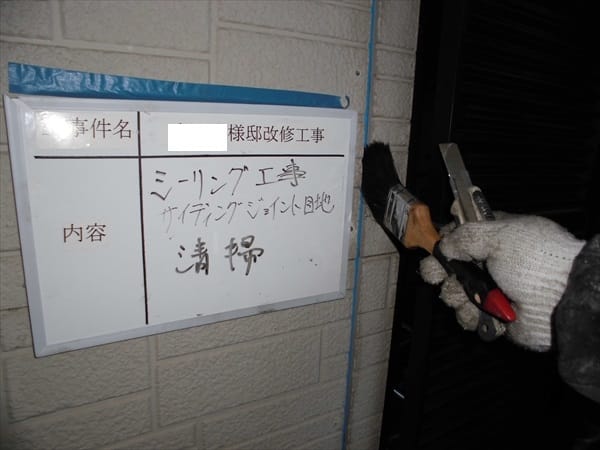 事件名 様邸改修工事
内容
シーリング工事
サイディングジョイント目地
清掃